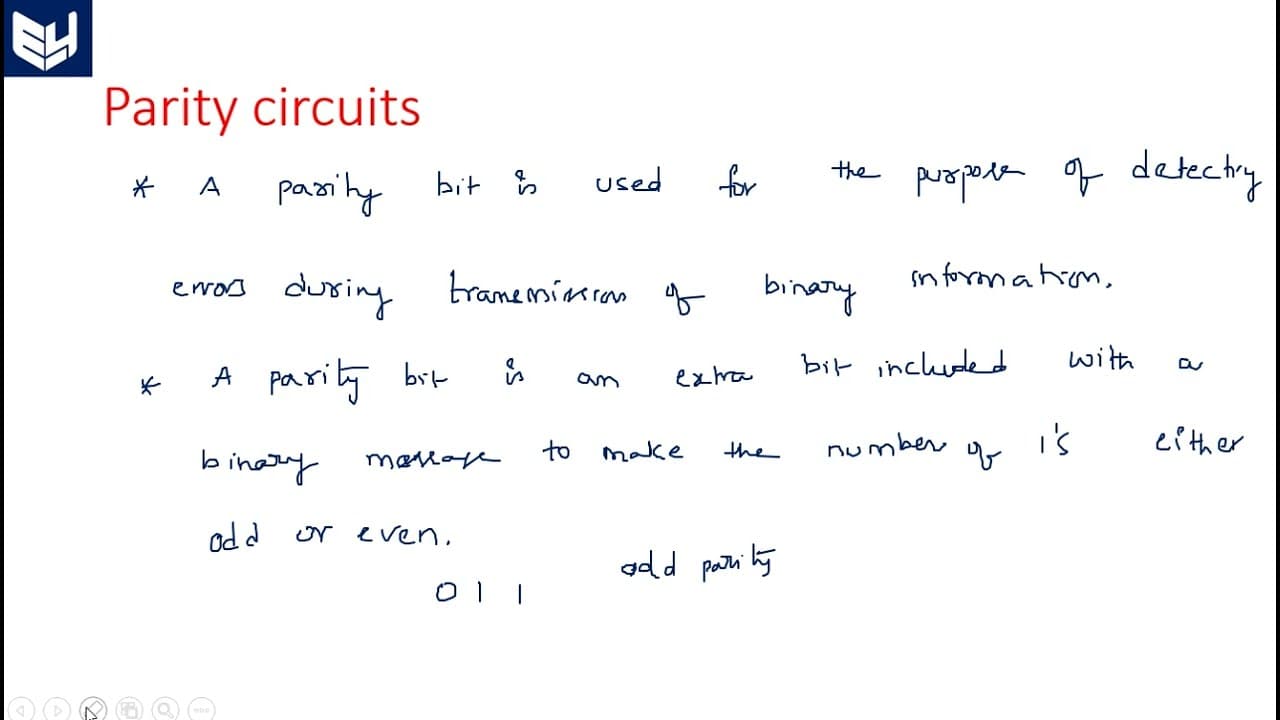 EH
Parity circuits
* A parity bit is used for the purpose of detecting
errors during transmission of binary information.
* A parity bit is an extra bit included with a
binary message to make the number of 1's either
odd or even.
0 1 1 odd parity